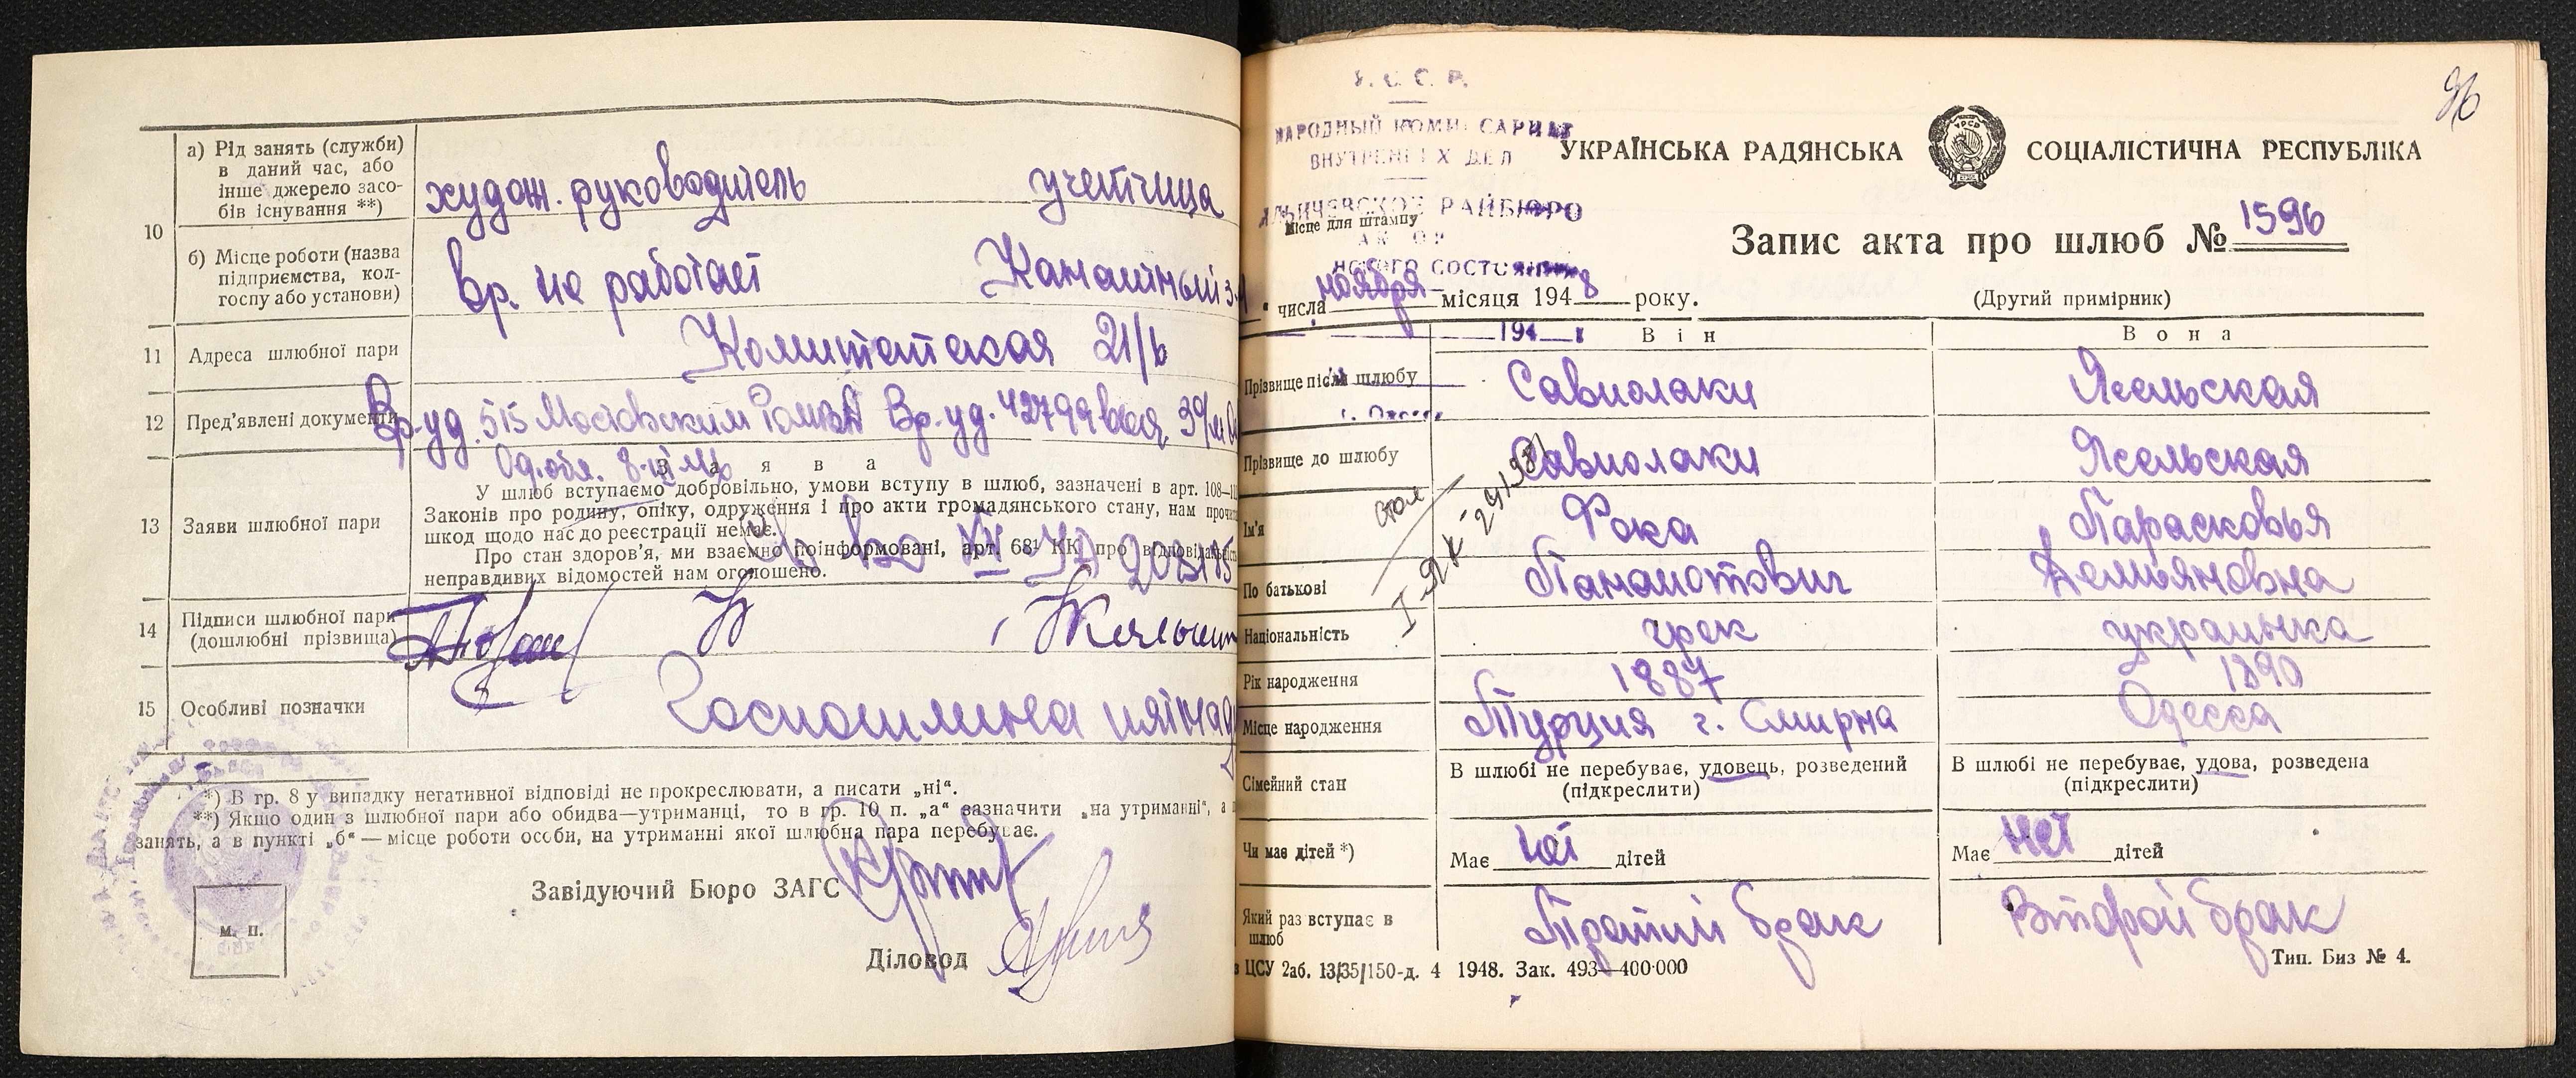 10
а) Рід занять (служби)
в даний час, або
інше джерело засо-
бів існування **)
худож. руководитель
учетчица
б) Місце роботи (назва
підприємства, кол-
госпу або установи)
вр. не работает
Канатный з-
11
Адреса шлюбної пари
Комитетская 21/6
12
Пред'явлені документи
Вр. уд. 515
Вр. уд. 42799
13
Заяви шлюбної пари
З а я в а
У шлюб вступаємо добровільно, умови вступу в шлюб, зазначені в арт. 108—
Законів про родину, опіку, одруження і про акти громадянського стану, нам
шкод щодо нас до реєстрації немає.
Про стан здоров'я, ми взаємно поінформовані, арт. 68¹ КК про
неправдивих відомостей нам оголошено.
203175
14
Підписи шлюбної пари
(дошлюбні прізвища)
15
Особливі позначки
Госпошлина
*) В гр. 8 у випадку негативної відповіді не прокреслювати, а писати „ні“.
**) Якщо один з шлюбної пари або обидва—утриманці, то в гр. 10 п. „а“ зазначити „на утриманні“, а
занять, а в пункті „б“ — місце роботи особи, на утриманні якої шлюбна пара перебуває.
Завідуючий Бюро ЗАГС
Діловод
м. п.
96
У. С. С. Р.
НАРОДНЫЙ КОМИССАРИАТ
ВНУТРЕННИХ ДЕЛ
ИЛЬИЧЕВСКОЕ РАЙБЮРО
Місце для штампу
УКРАЇНСЬКА РАДЯНСЬКА
УРСР
СОЦІАЛІСТИЧНА РЕСПУБЛІКА
Запис акта про шлюб № 1596
числа ноября місяця 1948 року.
(Другий примірник)
194
Він
Вона
Прізвище після шлюбу
Савиолаки
Ясельская
г. Одесса
Прізвище до шлюбу
Савиолаки
Ясельская
Ім'я
Фока
Парасковья
По батькові
Панаиотович
Демьяновна
Національність
грек
украинка
Рік народження
1887
1890
Місце народження
Турция г. Смирна
Одесса
Сімейний стан
В шлюбі не перебуває, удовець, розведений
(підкреслити)
В шлюбі не перебуває, удова, розведена
(підкреслити)
Чи має дітей *)
Має нет дітей
Має нет дітей
Який раз вступає в
шлюб
Третий брак
Второй брак
ЦСУ 2аб. 13/35/150-д. 4 1948. Зак. 493—400·000
Тип. Биз № 4.